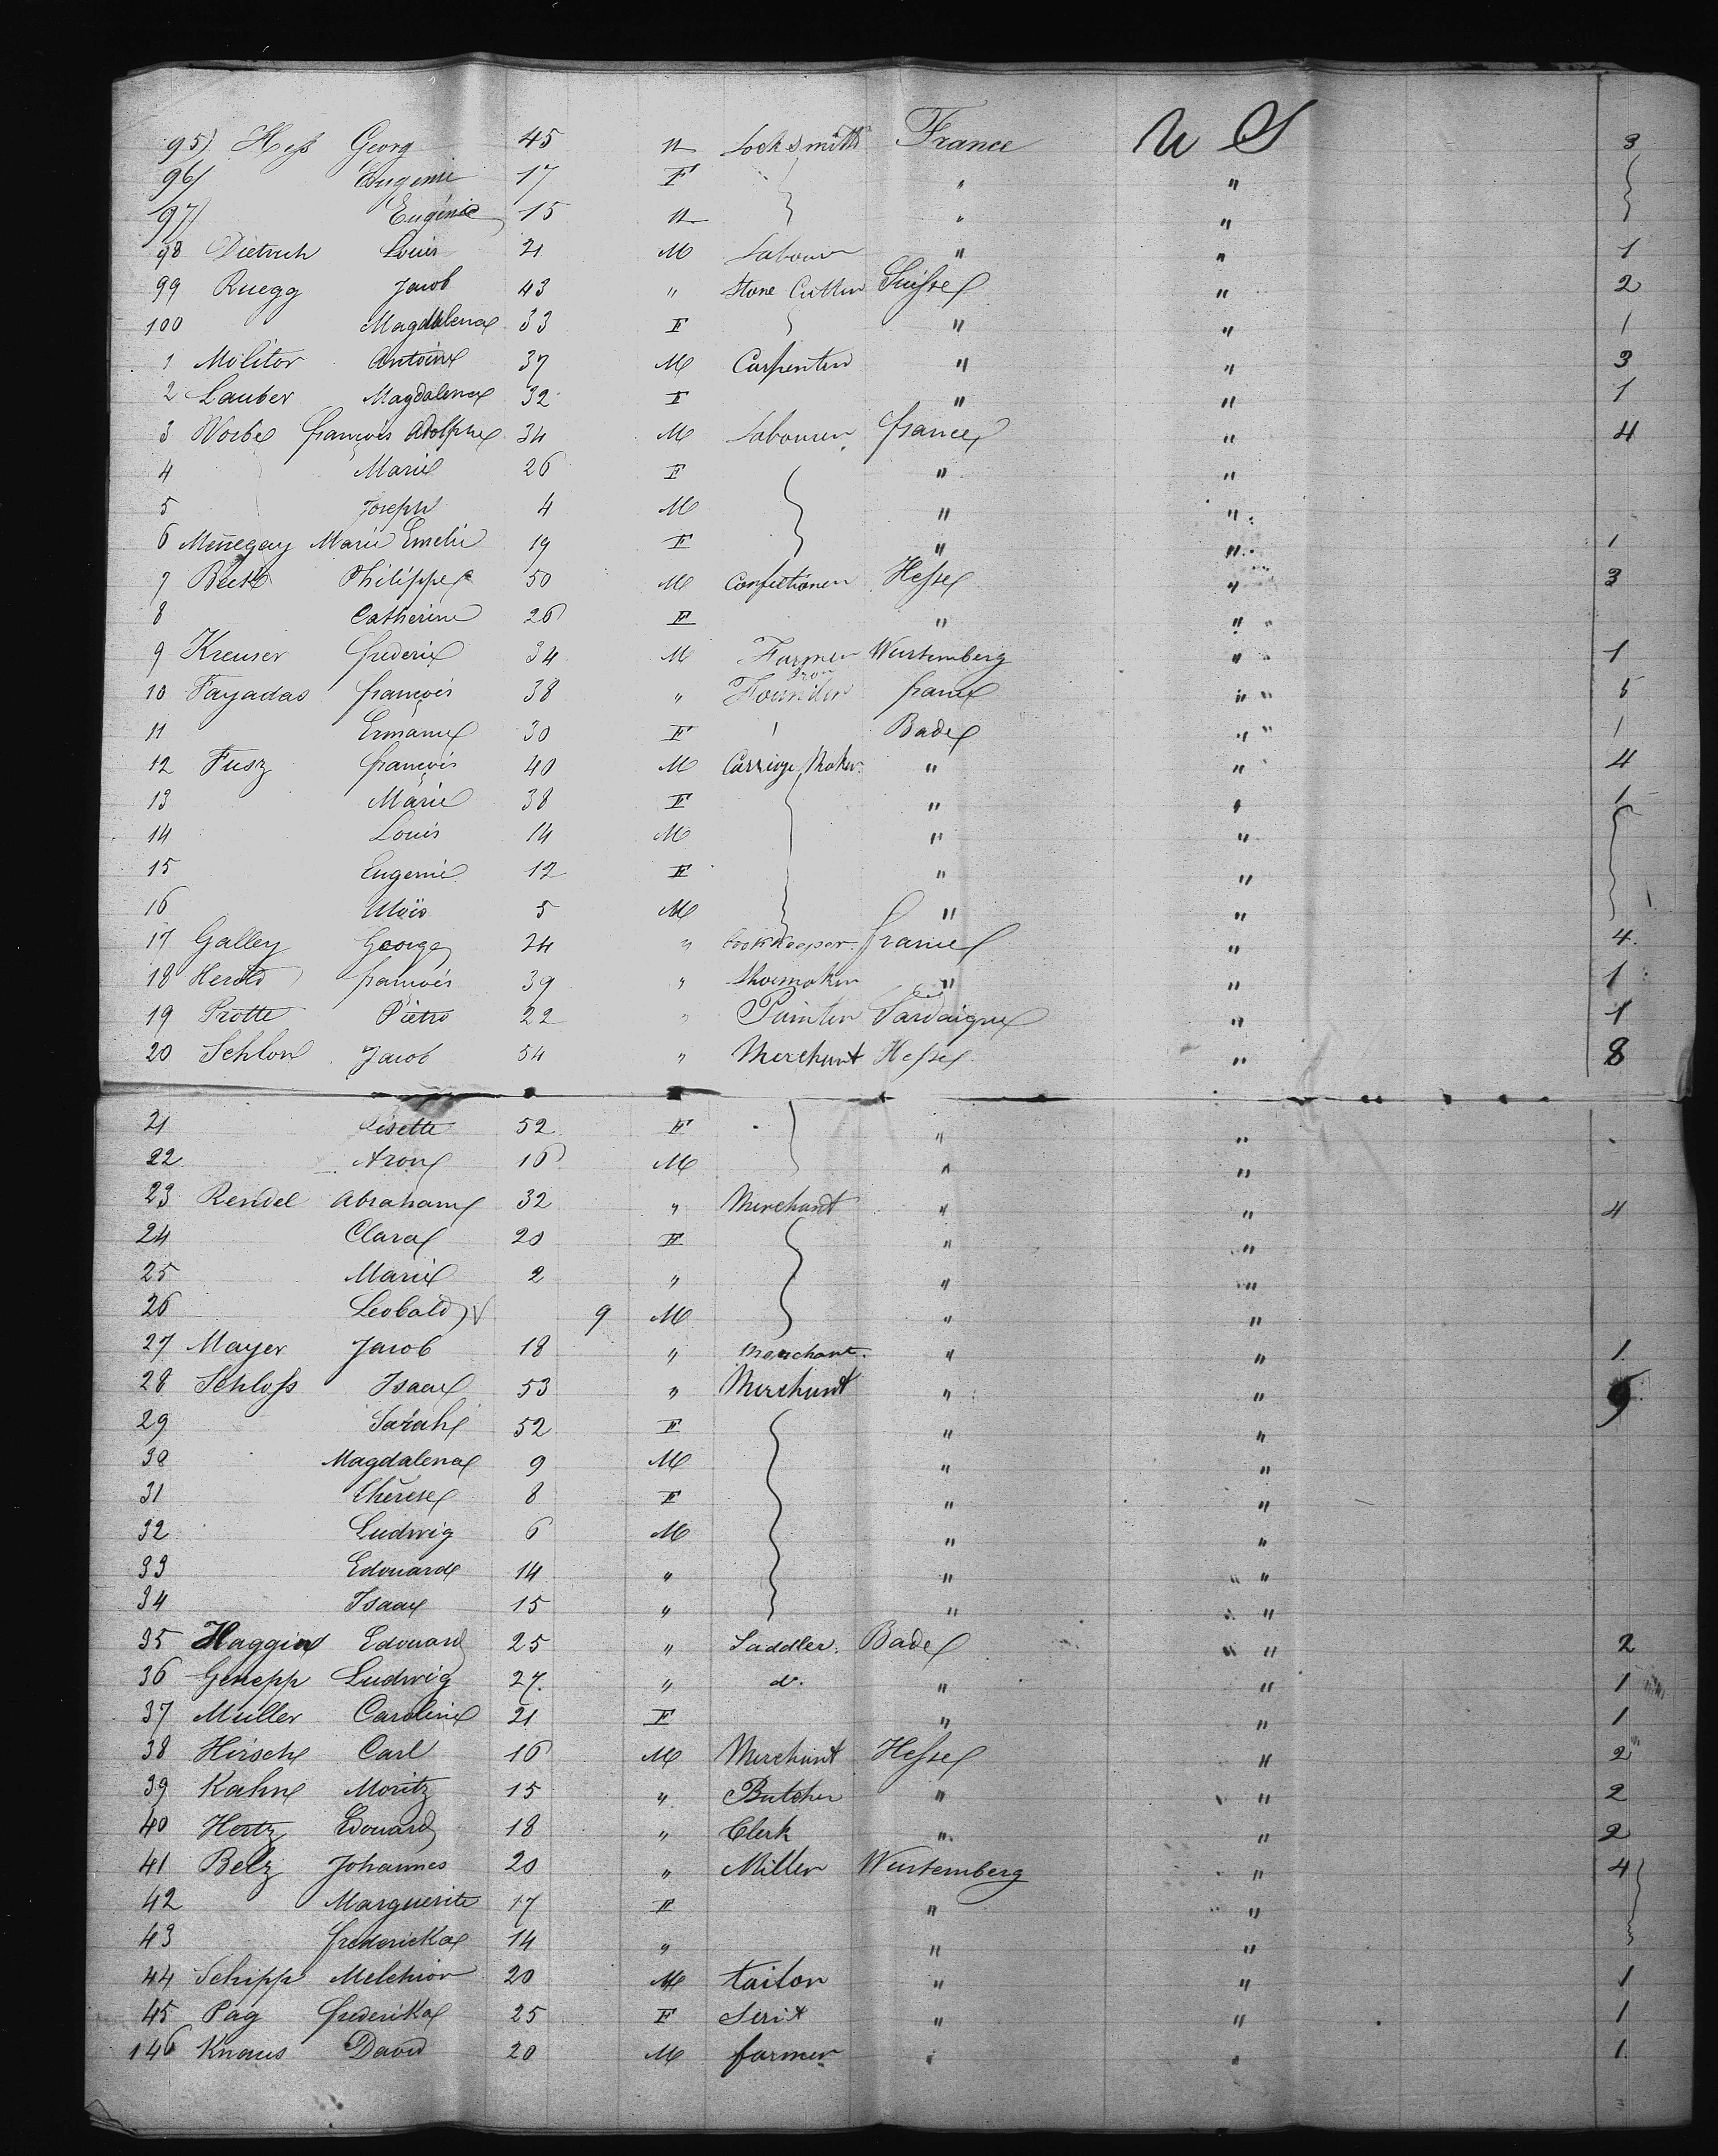 95) Hess Georg 45 M Locksmith France U S 3
96) Eugenie 17 F " "
97) Eugénie 15 M " "
98 Dietrich Louis 21 M Labourer " " 1
99 Ruegg Jacob 43 " Stone Cutter Suisse " 2
100 Magdalena 33 F " " 1
1 Molitor Antoine 37 M Carpenter " " 3
2 Lauber Magdalena 32 F " " 1
3 Worbe françois Adolphe 34 M Labourer france " 4
4 Marie 26 F " "
5 Joseph 4 M " "
6 Menegay Marie Emelie 19 F " " 1
7 Philippe 50 M Confectioner Hesse " 3
8 Catherine 26 F " "
9 Kreuser frederic 34 M Farmer Wurtemberg " 1
10 Fayadas françois 38 " Iron Founder france " 5
11 30 F Bade " 1
12 Fusz françois 40 M Carriage Maker " " 4
13 Marie 38 F " " 1
14 Louis 14 M " "
15 Eugenie 12 F " "
16 5 M " "
17 Galley George 24 " bookkeeper france " 4
18 Herold françois 39 " Shoemaker " " 1
19 Protte Pietro 22 " Painter Sardaigne " 1
20 Schlon Jacob 54 " Merchant Hesse " 8
21 Lisette 52 F " "
22 Aron 16 M " "
23 Rendel Abraham 32 " Merchant " " 4
24 Clara 20 F " "
25 Marie 2 " " "
26 Leobald 9 M " "
27 Mayer Jacob 18 " Merchant " " 1
28 Schloss Isaac 53 " Merchant " " 9
29 Sarah 52 F " "
30 Magdalena 9 M " "
31 Thérese 8 F " "
32 Ludwig 6 M " "
33 Edouard 14 " " "
34 Isaac 15 " " "
35 Haggin Edouard 25 " Saddler Bade " 2
36 Genepp Ludwig 27 " do. " " 1
37 Müller Caroline 21 F " " 1
38 Hirsch Carl 16 M Merchant Hesse " 2
39 Kahn Moritz 15 " Butcher " " 2
40 Hertz Edouard 18 " Clerk " " 2
41 Belz Johannes 20 " Miller Wurtemberg " 4
42 Marguerite 17 F " "
43 frederika 14 " " "
44 Schipp Melchior 20 M tailor " " 1
45 Pag frederika 25 F " " 1
146 Knaus David 20 M farmer " " 1